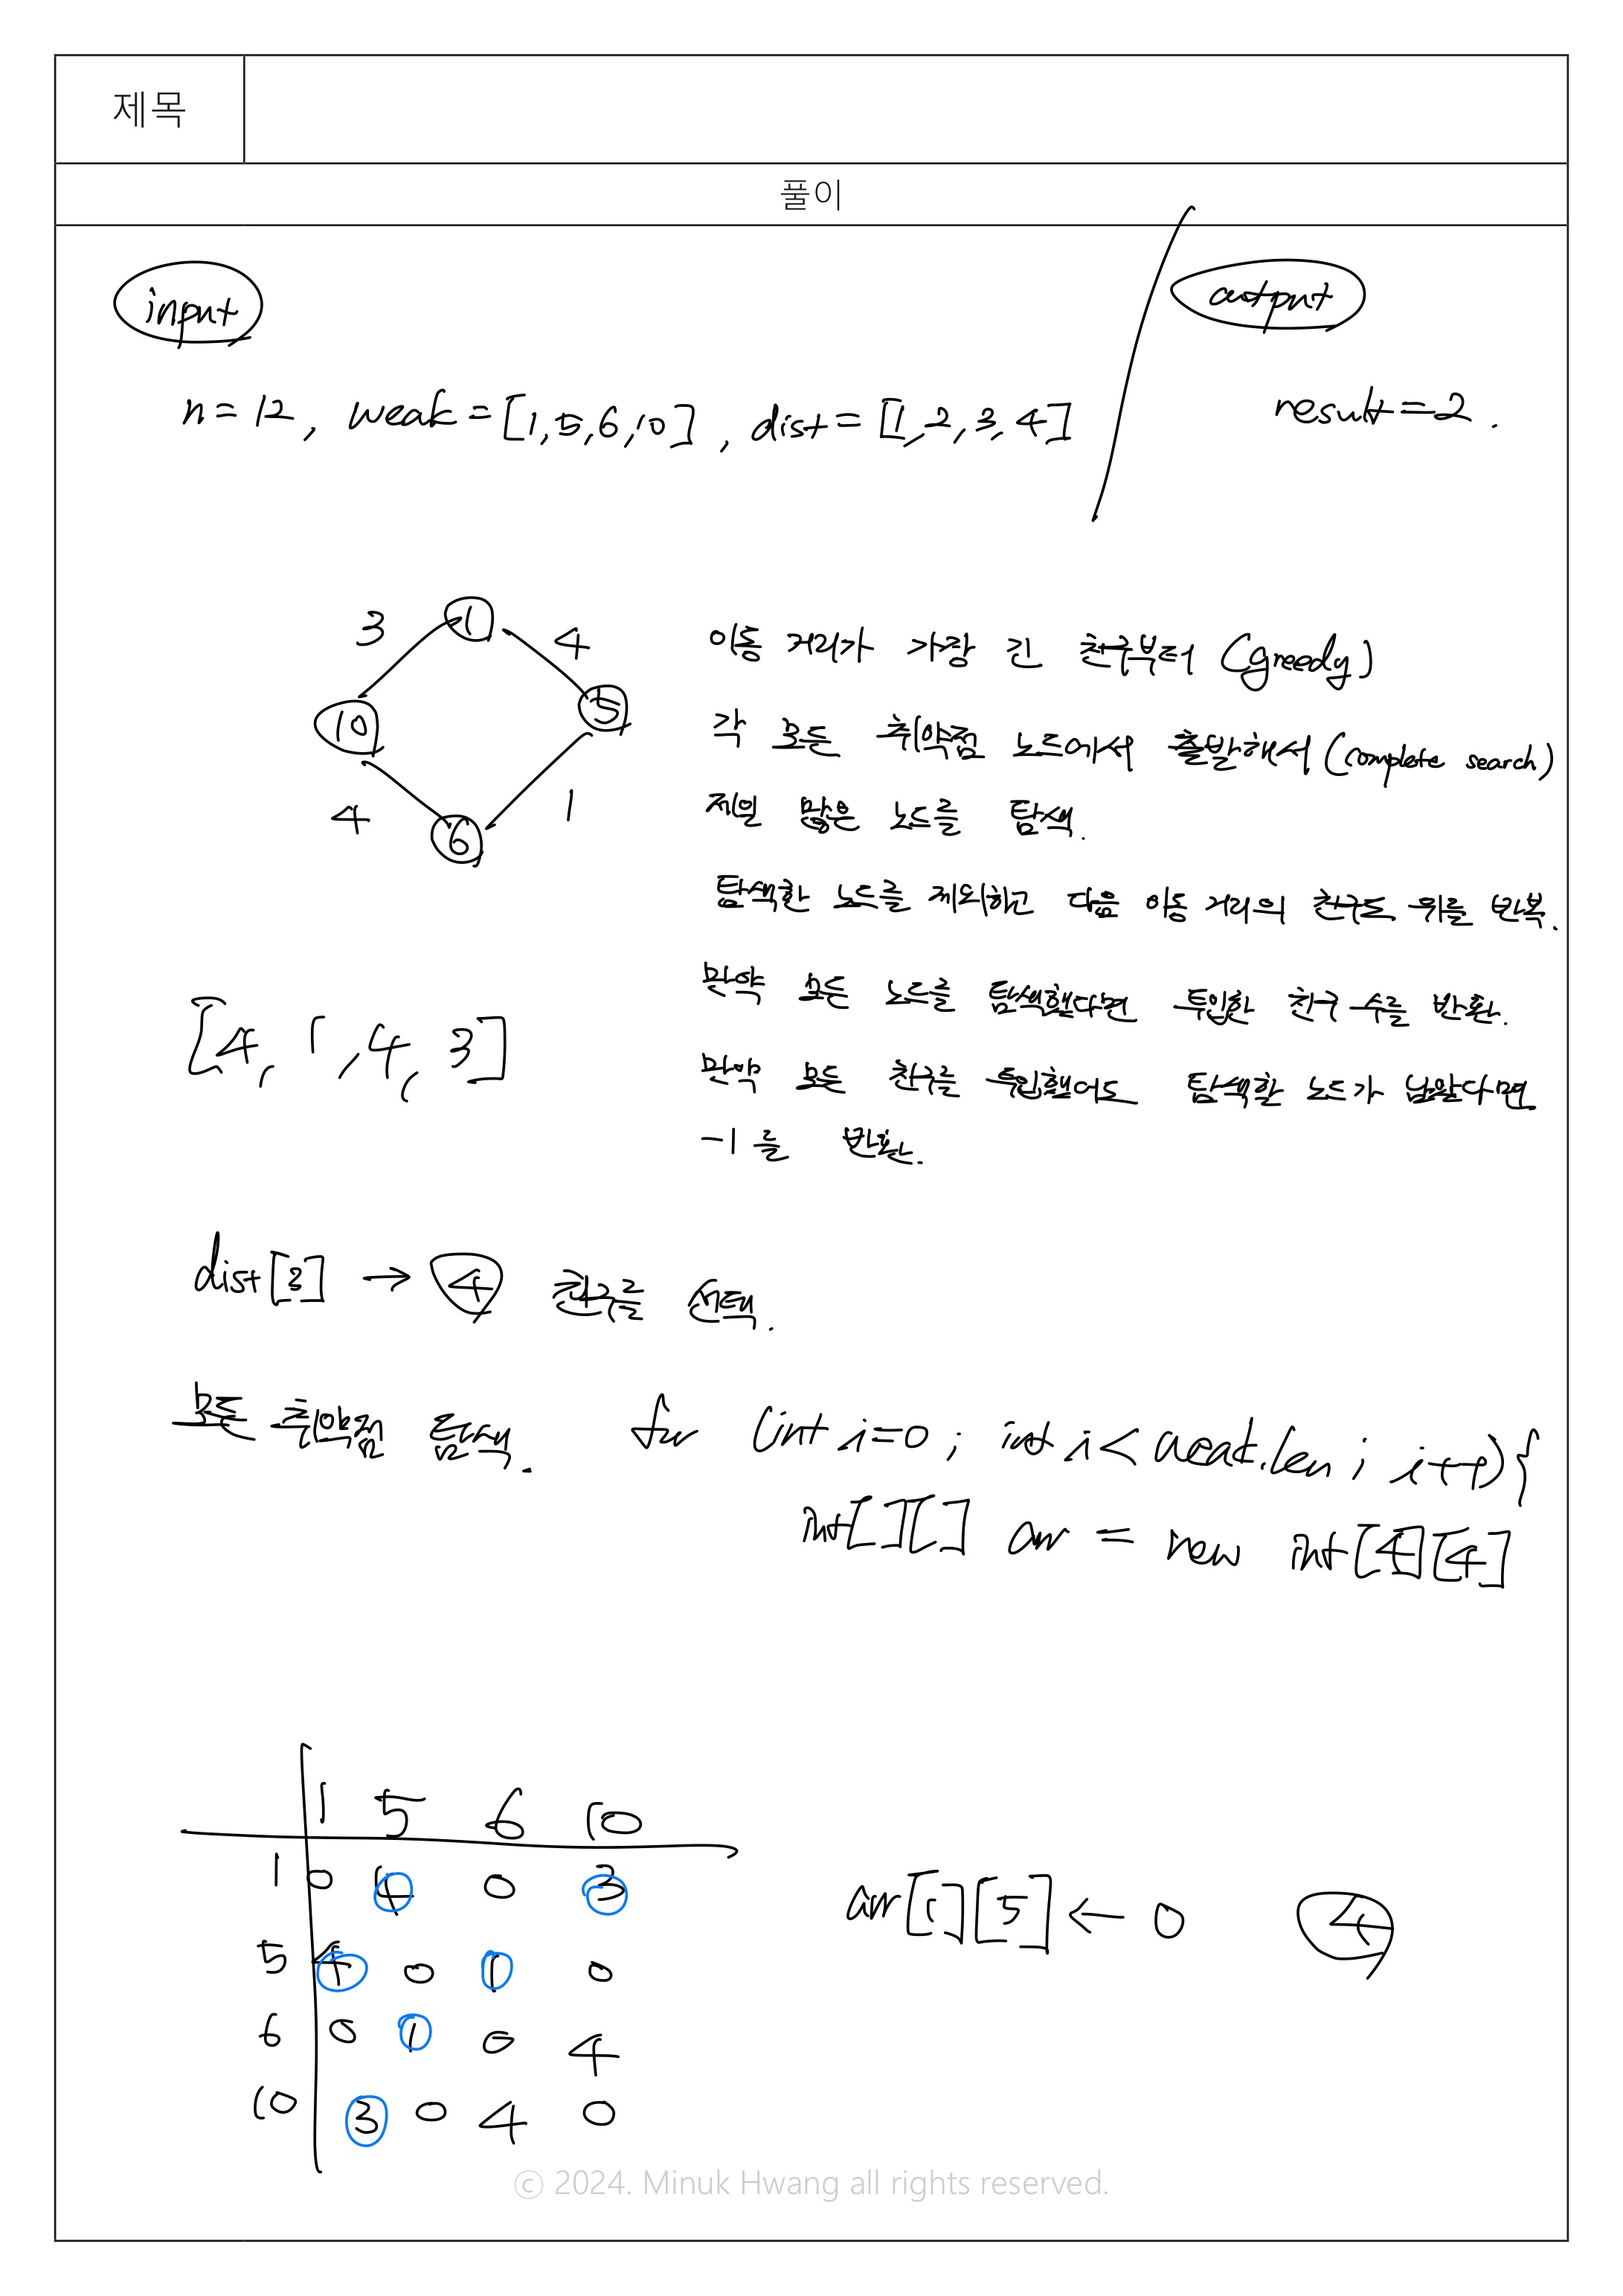 제목
풀이
input
output
n=12, weak=[1,5,6,10], dist=[1,2,3,4]
result=2.
3 1 4
10 5
4 6 1
이동 거리가 가장 긴 친구부터 (greedy)
각 모든 취약점 노드에서 출발해서 (complete search)
제일 많은 노드를 탐색.
탐색한 노드를 제외하고 다음 이동 거리의 친구도 위를 반복.
만약 모든 노드를 탐색했다면 투입한 친구 수를 반환.
[4, 1, 4, 3]
만약 모든 친구를 투입했어도 탐색할 노드가 남았다면
-1을 반환.
dist[3] → 4 친구를 선택.
모든 취약점 탐색. for (int i=0; int i<weak.len; i++){
int[][] arr = new int[4][4]
1 5 6 10
1 0 4 0 3
5 4 0 1 0
6 0 1 0 4
10 3 0 4 0
arr[1][5] ← 0 4
© 2024. Minuk Hwang all rights reserved.